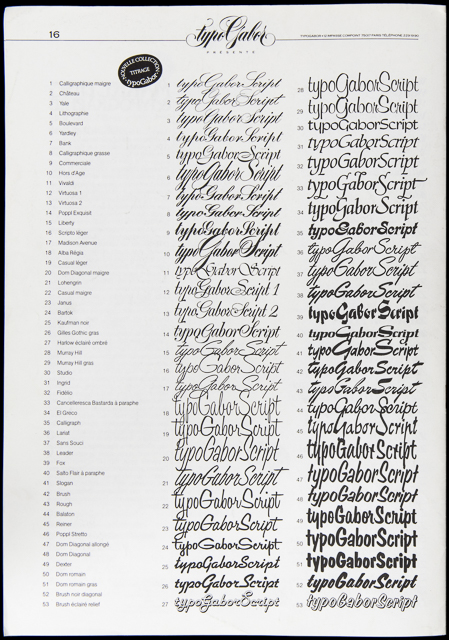 16
typoGabor
PRESENTE
NOUVELLE COLLECTION
TITRAGE
typoGabor
1 Calligraphique maigre
2 Château
3 Yale
4 Lithographie
5 Boulevard
6 Yardley
7 Bank
8 Calligraphique grasse
9 Commerciale
10 Hors d'Age
11 Vivaldi
12 Virtuosa 1
13 Virtuosa 2
14 Poppl Exquisit
15 Liberty
16 Scripto léger
17 Madison Avenue
18 Alba Régia
19 Casual léger
20 Dom Diagonal maigre
21 Lohengrin
22 Casual maigre
23 Janus
24 Bartok
25 Kaufman noir
26 Gilles Gothic gras
27 Harlow éclairé ombré
28 Murray Hill
29 Murray Hill gras
30 Studio
31 Ingrid
32 Fidelio
33 Cancelleresca Bastarda à paraphe
34 El Gréco
35 Calligraph
36 Larial
37 Sans Souci
38 Leader
39 Fox
40 Salto Flair à paraphe
41 Slogan
42 Brush
43 Rough
44 Balaton
45 Reiner
46 Poppl Stretto
47 Dom Diagonal allongé
48 Dom Diagonal
49 Dexter
50 Dom romain
51 Dom romain gras
52 Brush noir diagonal
53 Brush éclairé relief
1 typoGabor Script
2 typoGabor Script
3 typoGabor Script
4 typoGabor Script
5 typoGabor Script
6 typoGabor Script
7 typoGabor Script
8 typoGabor Script
9 typoGabor Script
10 typoGabor Script
11 typoGabor Script
12 typoGabor Script 1
13 typoGabor Script 2
14 typoGabor Script
15 typoGabor Script
16 typoGabor Script
17 typoGabor Script
18 typoGabor Script
19 typoGabor Script
20 typoGabor Script
21 typoGabor Script
22 typoGabor Script
23 typoGabor Script
24 typoGabor Script
25 typoGabor Script
26 typoGabor Script
27 typoGabor Script
28 typoGabor Script
29 typoGabor Script
30 typoGabor Script
31 typoGabor Script
32 typoGabor Script
33 typoGabor Script
34 typoGabor Script
35 typoGabor Script
36 typoGabor Script
37 typoGabor Script
38 typoGabor Script
39 typoGabor Script
40 typoGabor Script
41 typoGabor Script
42 typoGabor Script
43 typoGabor Script
44 typoGabor Script
45 typoGabor Script
46 typoGabor Script
47 typoGabor Script
48 typoGabor Script
49 typoGabor Script
50 typoGabor Script
51 typoGabor Script
52 typoGabor Script
53 typoGabor Script